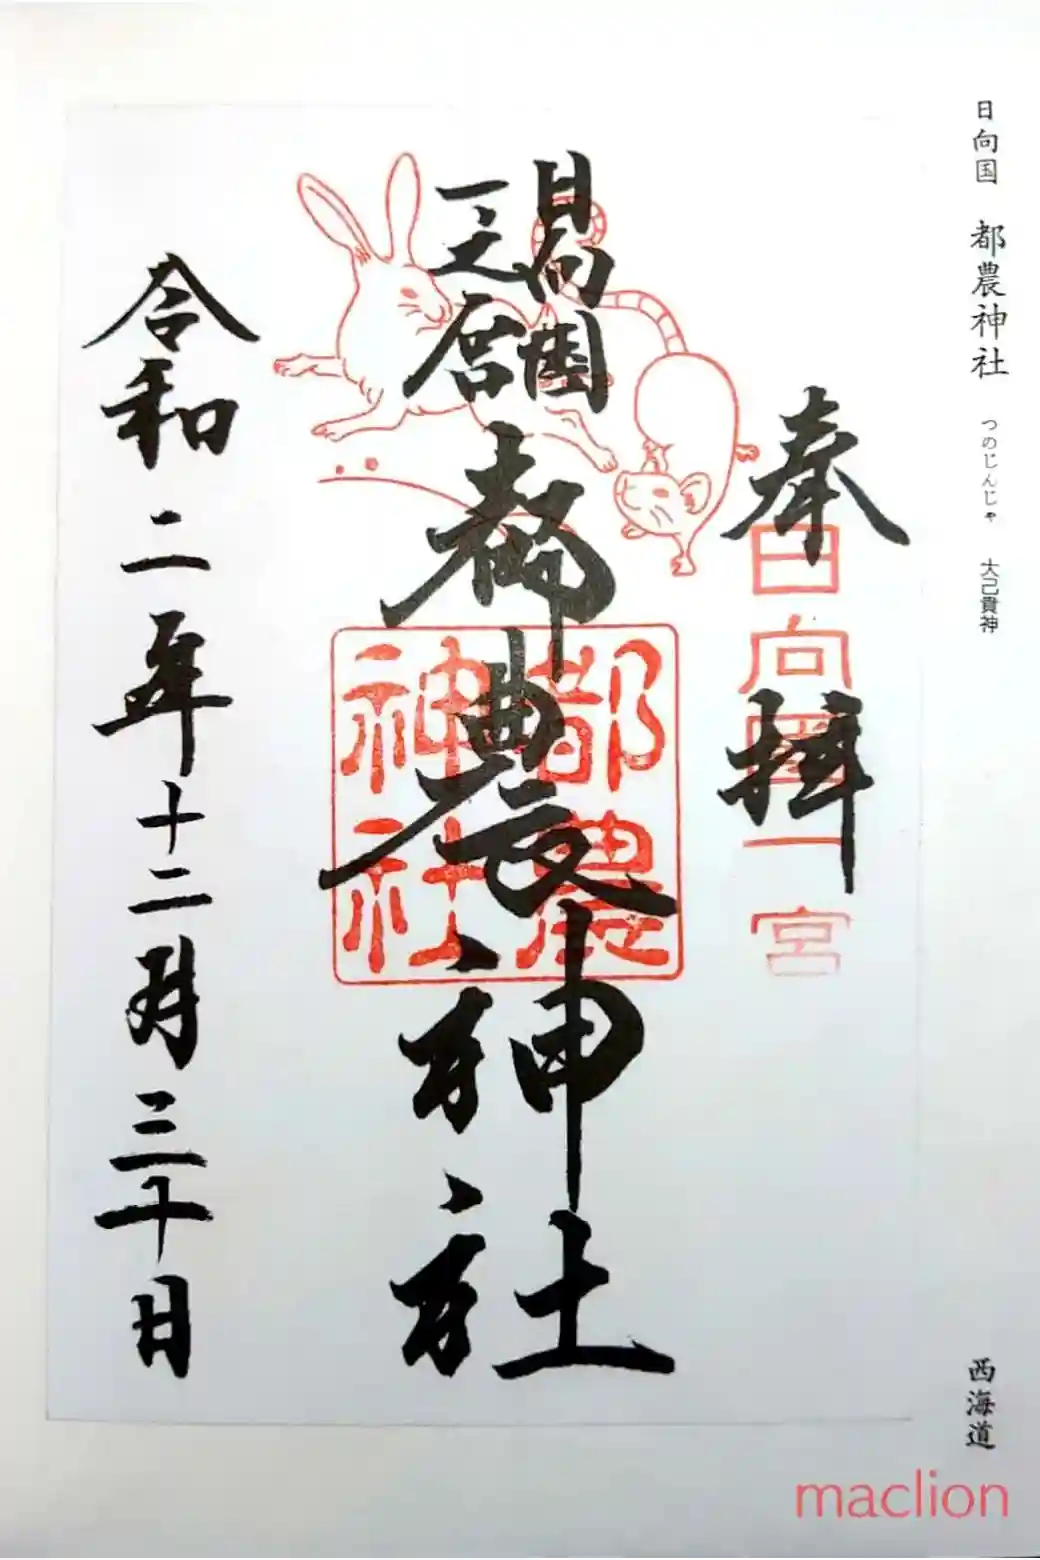 日向国 都農神社 つのじんじゃ 大己貴神
西海道
奉拝
日向國一宮
日向國
一之宮
都農神社
都農
神社
令和二年十二月三十日
maclion